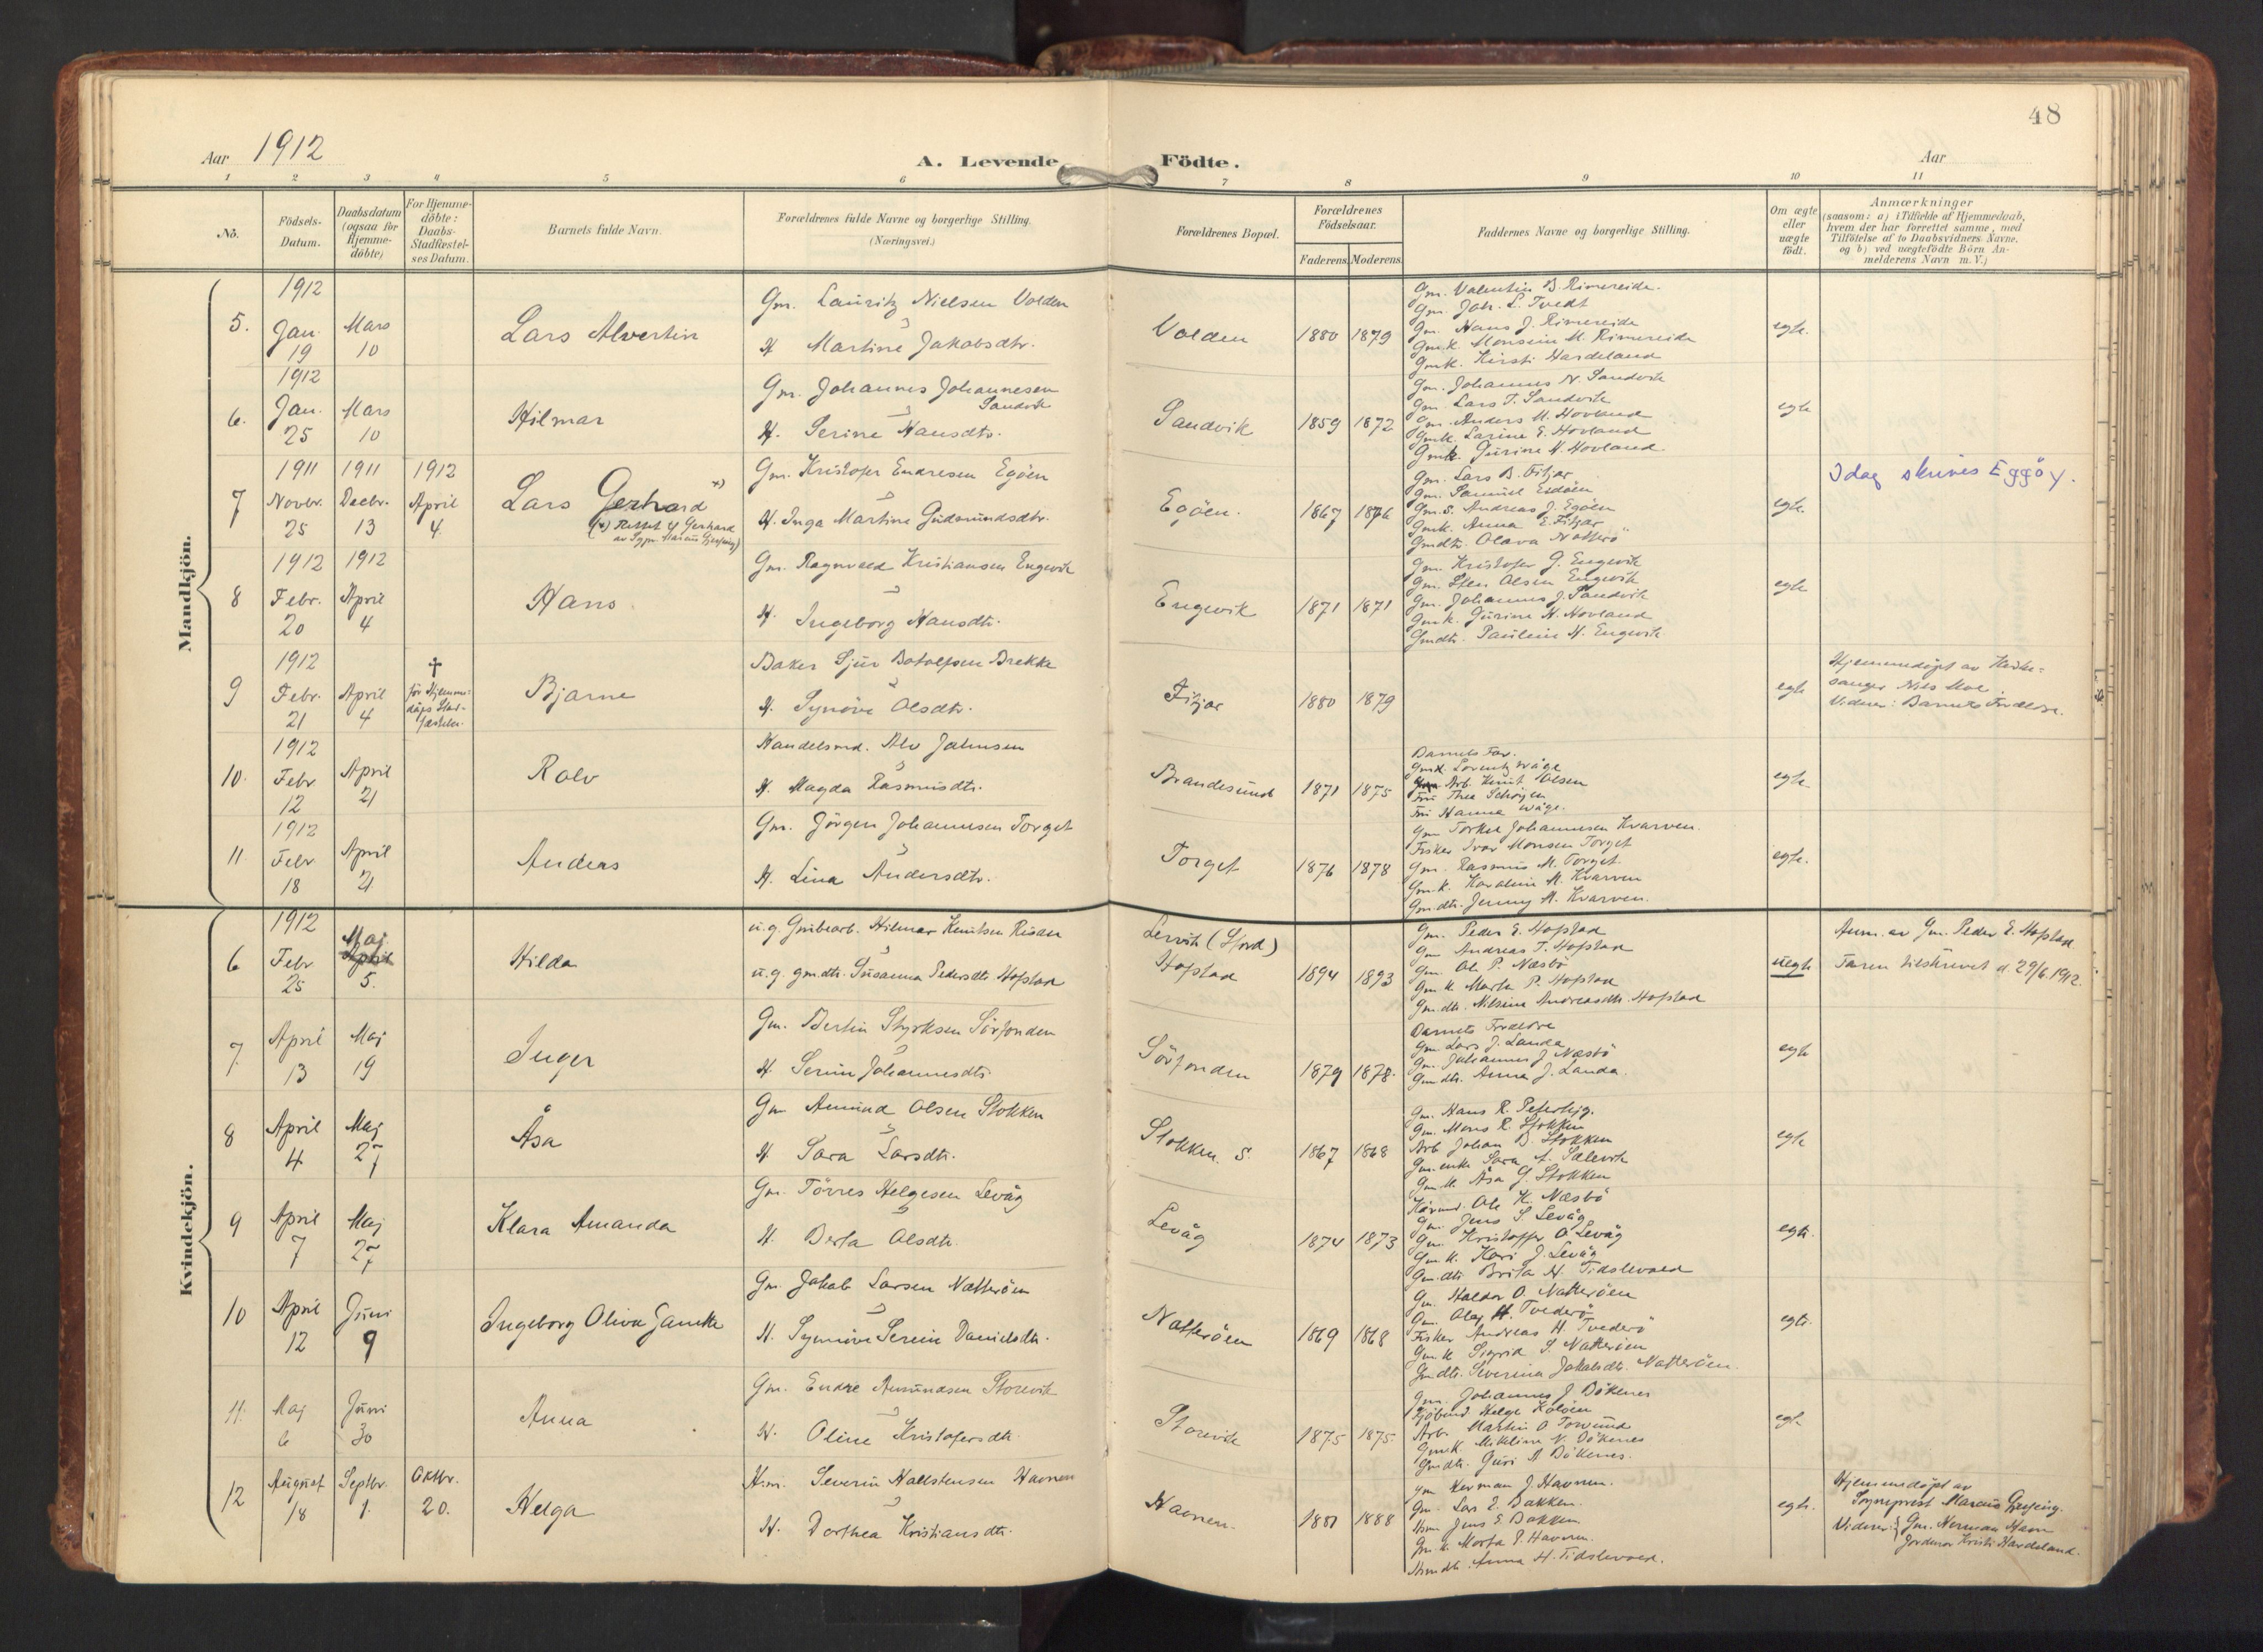 48
Aar 1912
A. Levende Födte.
Aar
1 2 3 4 5 6 7 8 9 10 11
No.
Födsels-Datum.
Daabsdatum (ogsaa for Hjemme-döbte)
For Hjemme-döbte: Daabs-Stadfæstel-ses Datum.
Barnets fulde Navn.
Forældrenes fulde Navne og borgerlige Stilling.
(Næringsvei.)
Forældrenes Bopæl.
Forældrenes Födselsaar.
Faderens. Moderens.
Faddernes Navne og borgerlige Stilling.
Om ægte eller uægte födt.
Anmærkninger
(saasom: a) i Tilfælde af Hjemmedaab,
hvem der har forrettet samme, med
Tilföielse af to Daabsvidners Navne,
og b) ved uægtefödte Börn An-
melderens Navn m. V.)
Mandkjön.
5. 1912 Jan. 19 Mars 10
Lars Alvertin
Gm. Lauritz Nielsen Volden
H Martine Jakobsdtr.
Volden 1880 1879
Gm. Valentin B. Rimereide.
Gm. Joh. L. Tvedt
Gm. Hans J. Rimereide
Gmk. Monsine M. Rimereide
Gmk. Kirsti Hardeland
egte.
6. 1912 Jan. 25 Mars 10
Hilmar
Gm. Johannes Johannesen
Sandvik
H. Serine Hansdtr.
Sandvik 1859 1872
Gm. Johannes N. Sandvik
Gm. Lars T. Sandvik
Gm. Anders M. Hovland
Gmk. Larine E. Hovland
Gmk. Gurine H. Hovland
egte
7 1911 Novbr. 25 1911 Decbr. 13 1912 April 4.
Lars Gerhard x)
(x) Rettet t Gerhard
av Sogpr. Marcus Gjessing)
Gm. Kristofer Endresen Egöen
H. Inga Martine Gudmundsdtr.
Egöen. 1867 1876
Gm. Lars B. Fitjar
Gm. Samuel Esdöen
Gm.s. Andreas J. Egöen
Gmk. Anna E. Fitjar
Gmdtr. Olava Natterö
egte.
Idag skrives Eggöy.
8 1912 Febr. 20 1912 April 4
Hans
Gm. Ragnvald Kristiansen Engevik
H. Ingeborg Hansdtr.
Engevik 1871 1871
Gm. Kristofer G. Engevik
Gm. Sten Olsen Engevik
Gm. Johannes J. Sandvik
Gmk. Gurine H. Hovland
Gmdtr. Pauline H. Engevik
egte
9 1912 Febr. 21 April 4
† för Hjemme-
daps Stad-
fæstelse.
Bjarne
Baker Sjur Botolfsen Brekke
H. Synöve Olsdtr.
Fitjar 1880 1879
egte
Hjemmedöpt av Kirke-
sanger Nils Moe.
Vidner: Barnets Foreldre.
10. 1912 Febr 12 April 21
Rolv
Handelsmd. Alv Johnsen
H. Magda Rasmusdtr.
Brandesund 1871 1875
Barnets Far.
Gmd. Lorentz Våge
Arb. Knut Olsen
Fru Thea Schöyen
Fru Hanna Våge.
egte
11. 1912 Febr 18 April 21
Andreas
Gm. Jörgen Johannesen Torget
H. Lina Andersdtr.
Torget 1876 1878
Gm Torkel Johannesen Kvarven.
Fisker Ivar Monsen Torget
Gm. Rasmus M. Torget
Gm.k. Karoline M. Kvarven
Gm.dtr. Jenny M. Kvarven.
egte.
Kvindekjön.
6 1912 Febr 25 Maj 5.
Hilda
u.g. Grubearb. Hilmar Knutsen Risdal
u.g gm.dtr. Susanna Pedersdtr Hopstad
Lervik (Stord)
Hopstad 1894 1893
Gm. Peder E. Hopstad
Gm Andreas T. Hopstad
Gm. Ole P. Næsbö
Gm k Marta P. Hopstad
Gm.dtr. Nilsine Andreasdtr. Hopstad
uegte
Anm. av Gm. Peder E. Hopstad
Faren tilskrevet d. 29/6. 1912.
7. April 13 Maj 19
Inger
Gm. Bertin Styrksen Sörfonden
H. Serine Johannesdtr.
Sörfonden 1879 1878.
Barnets Foreldre
Gm Lars J. Landa
Gm. Johannes J Næsbö
Gmdtr. Anna J. Landa.
egte
8 April 4 Maj 27
Åsa
Gm Amund Olsen Stokken
H Sara Larsdtr.
Stokken. S. 1867 1868
Gm. Hans R.
Gm. Mons R. Stokken
Arb Johan B. Stokken
Gm.enke Sara A. Sælevik
Gm.k. Åsa G. Stokken
egte
9 April 7 Maj 27
Klara Amanda
Gm. Törres Helgesen Levåg
H. Berta Olsdtr.
Levåg 1874 1873
Kårmd. Ole K. Næsbö
Gm. Jens S Levåg
Gm. Kristoffer O Levåg
Gm k. Kari J. Levåg
Gm.dtr Brita H. Tidslevold
egte.
10 April 12 Juni 9
Ingeborg Oliva
Gm. Jakob Larsen Natteröen
H. Synnöve Serine Danielsdtr.
Natteröen 1869 1868
Gm. Haldor O. Natteröen
Gm. Olaf H. Tvederö
Fisker Andreas H. Tvederö
Gm.k Sigrid S. Natteröen
Gmdtr. Severina Jakobsdtr. Natteröen.
egte.
11. Maj 6 Juni 30
Anna
Gm. Endre Amundsen Storevik
H. Oline Kristofersdtr.
Storevik 1875 1875.
Gm. Johannes J Dökenes
Helge Kolöen
Arb. Martin O Torvund
Gm.k. Mikline N. Dökenes
Gmdtr. Guri A Dökenes.
egte
12 August 18 Septbr. 1. Oktbr. 20.
Helga
Hm. Severin Hallstensen Havnen
H. Dorthea Kristiansdtr.
Havnen. 1881 1888
Gm Herman J. Havnen.
Gm. Lars E. Bakken.
Hm Jens E Bakken
Gm.k. Marta E. Havnen.
Hmdtr. Anna H. Tidslevold.
egte.
Hjemmedöpt av
Sogneprest Marcus Gjessing.
Vidner: Gm. Herman Havn
Jordmor Kristi Hardeland.